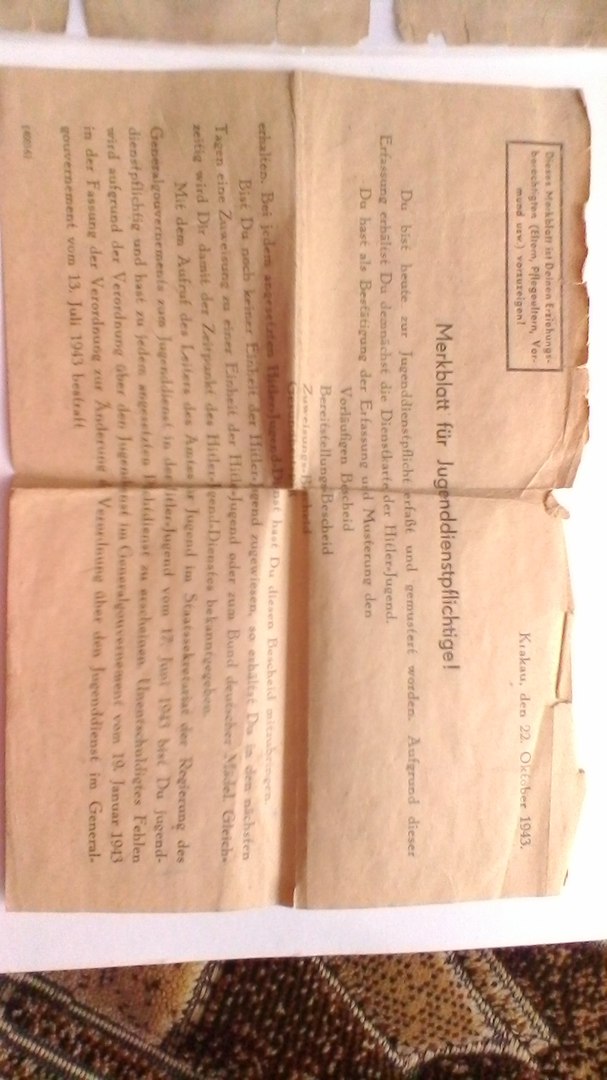 Dieses Merkblatt ist Deinen Erziehungs-
berechtigten (Eltern, Pflegeeltern, Vor-
mund usw.) vorzuzeigen!
Krakau, den 22. Oktober 1943.
Merkblatt für Jugenddienstpflichtige!
Du bist heute zur Jugenddienstpflicht erfaßt und gemustert worden. Aufgrund dieser
Erfassung erhältst Du demnächst die Dienstkarte der Hitler-Jugend.
Du hast als Bestätigung der Erfassung und Musterung den
Vorläufigen Bescheid
Bereitstellungs-Bescheid
Zuweisungs-Bescheid
erhalten. Bei jedem angesetzten Hitler-Jugend-Dienst hast Du diesen Bescheid mitzubringen.
Bist Du noch keiner Einheit der Hitler-Jugend zugewiesen, so erhältst Du in den nächsten
Tagen eine Zuweisung zu einer Einheit der Hitler-Jugend oder zum Bund deutscher Mädel. Gleich-
zeitig wird Dir damit der Zeitpunkt des Hitler-Jugend-Dienstes bekanntgegeben.
Mit dem Aufruf des Leiters des Amtes für Jugend im Staatssekretariat der Regierung des
Generalgouvernements zum Jugenddienst in der Hitler-Jugend vom 17. Juni 1943 bist Du jugend-
dienstpflichtig und hast zu jedem angesetzten Pflichtdienst zu erscheinen. Unentschuldigtes Fehlen
wird aufgrund der Verordnung über den Jugenddienst im Generalgouvernement vom 19. Januar 1943
in der Fassung der Verordnung zur Änderung der Verordnung über den Jugenddienst im General-
gouvernement vom 13. Juli 1943 bestraft.